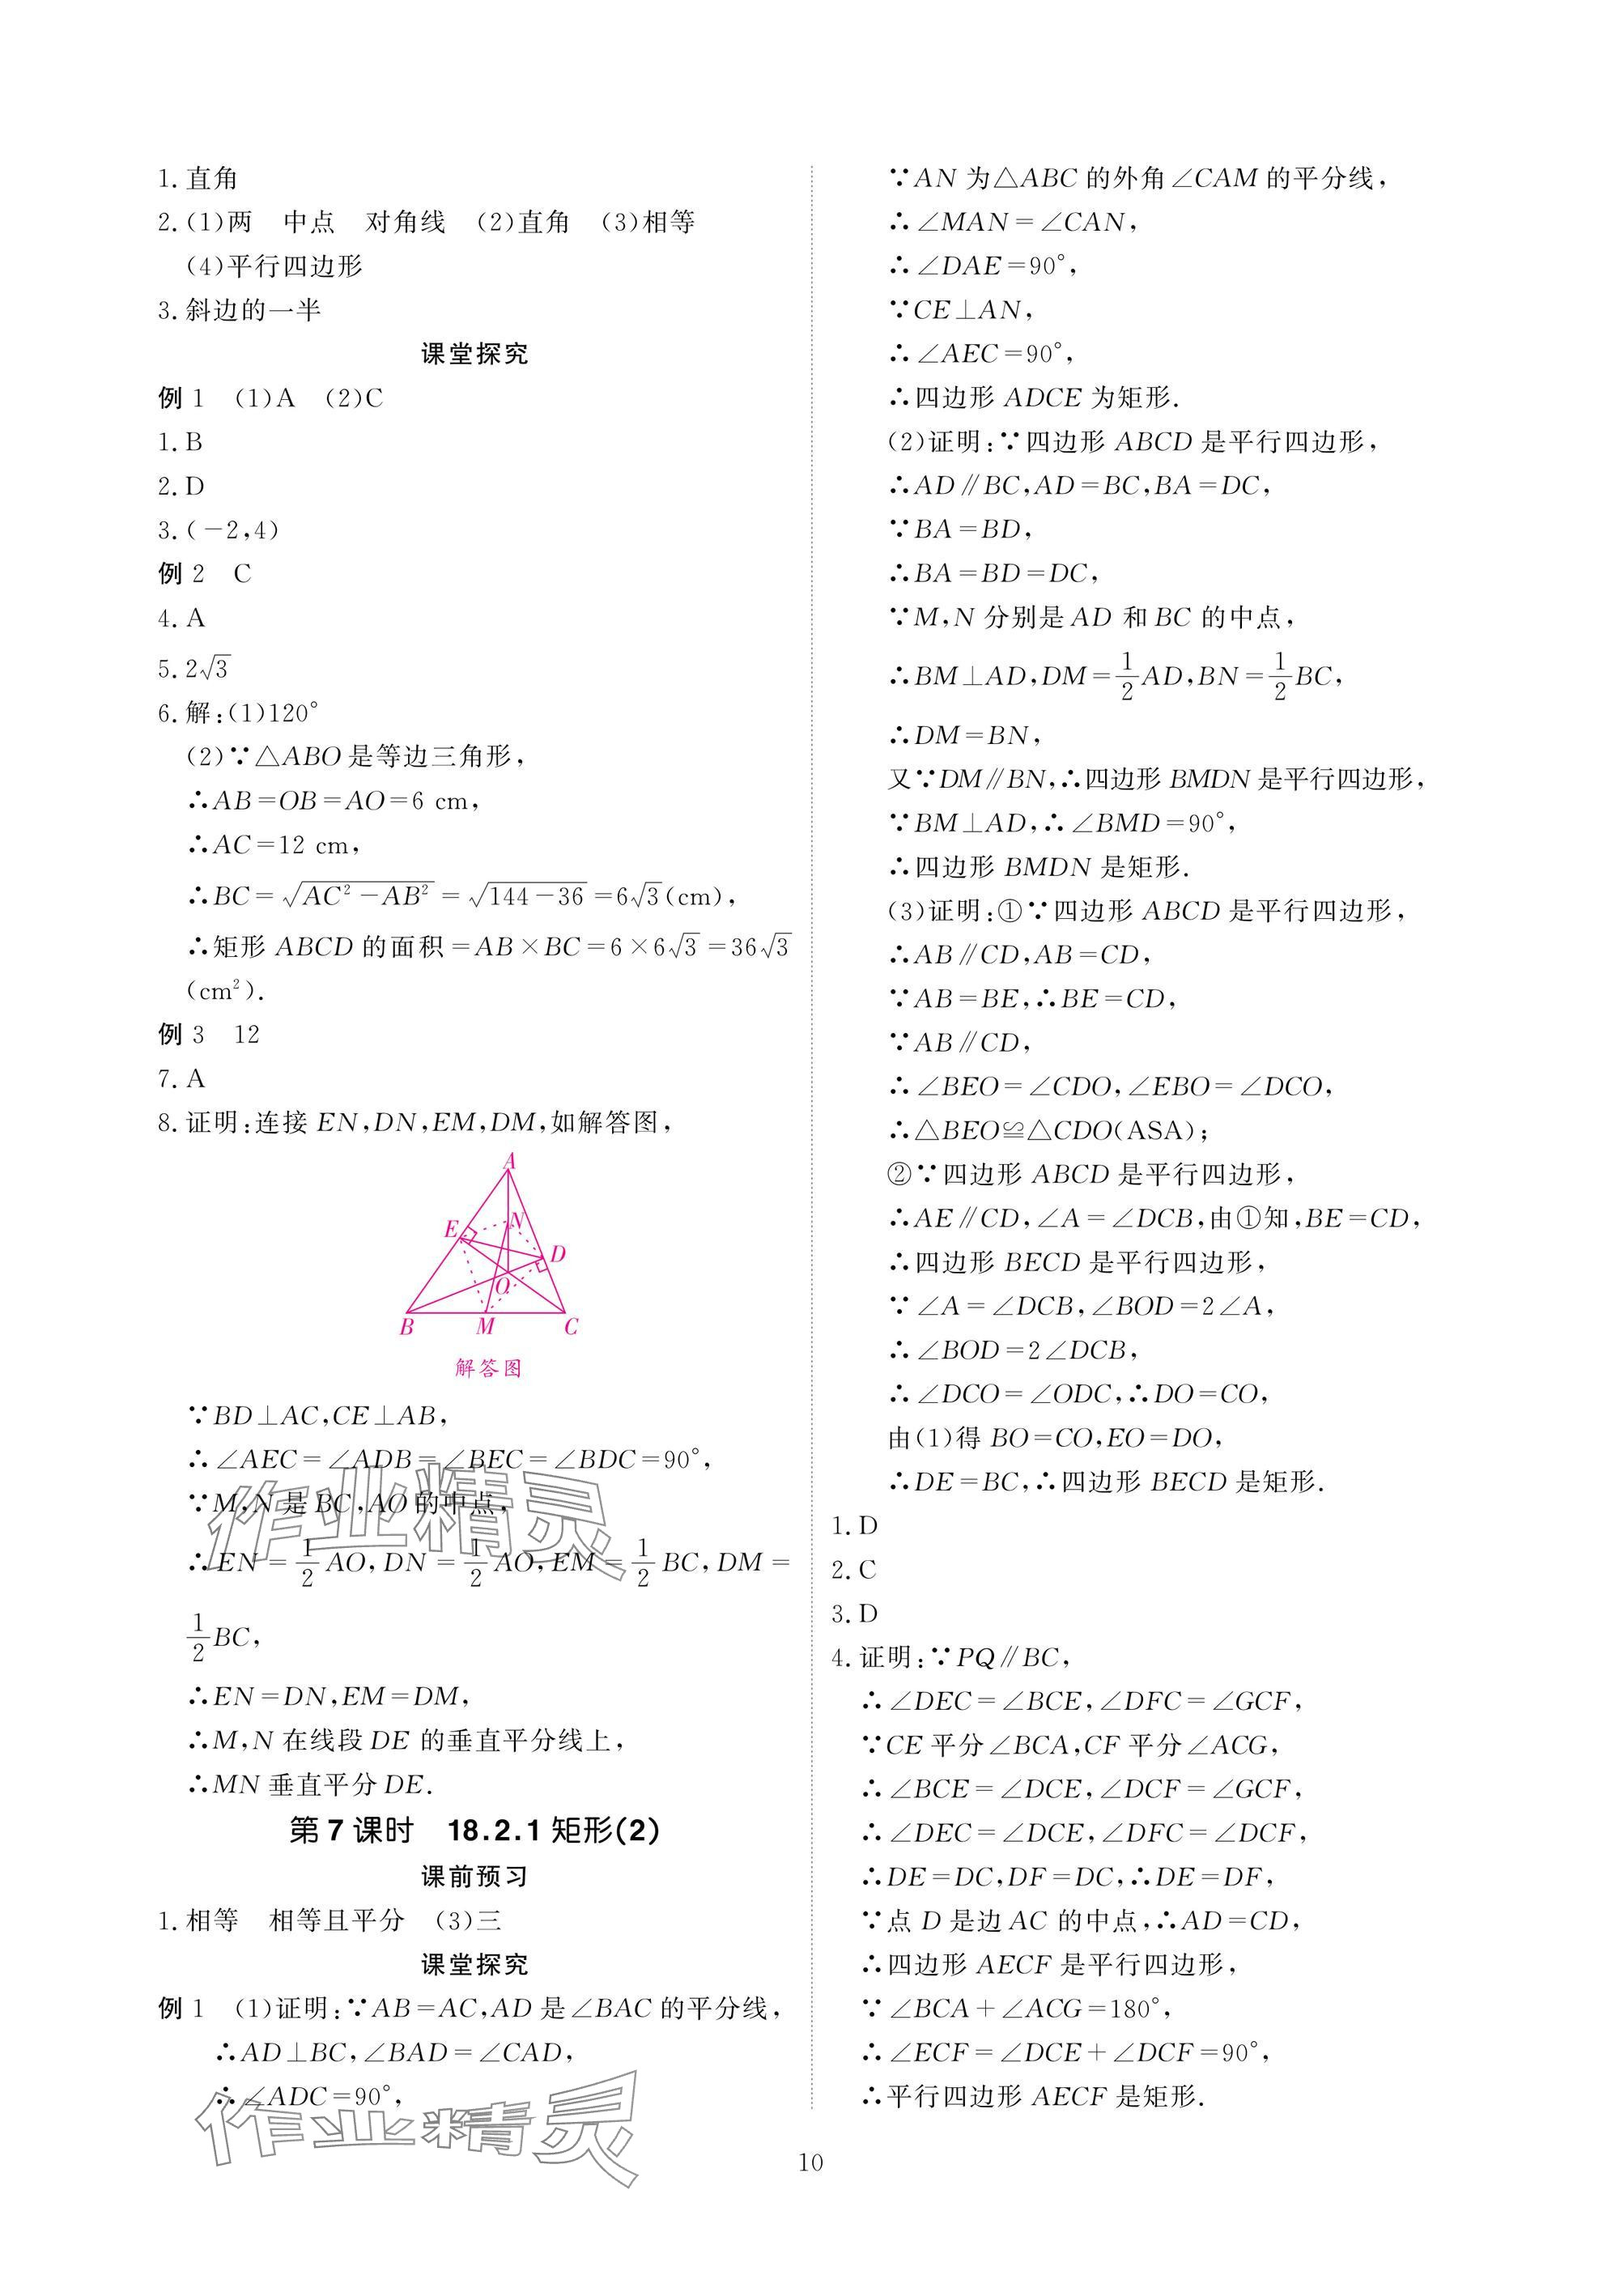 1. 直角
2. (1)两　中点　对角线　(2)直角　(3)相等
(4)平行四边形
3. 斜边的一半
课堂探究
例 1　(1)A　(2)C
1. B
2. D
3. (－2,4)
例 2　C
4. A
5. 2√3
6. 解:(1)120°
(2)∵△ABO 是等边三角形,
∴AB＝OB＝AO＝6 cm,
∴AC＝12 cm,
∴BC＝√(AC²－AB²)＝√(144－36)＝6√3(cm),
∴矩形 ABCD 的面积＝AB×BC＝6×6√3＝36√3
(cm²).
例 3　12
7. A
8. 证明:连接 EN,DN,EM,DM,如解答图,
A
E
N
D
O
B
M
C
解答图
∵BD⊥AC,CE⊥AB,
∴∠AEC＝∠ADB＝∠BEC＝∠BDC＝90°,
∵M,N 是 BC,AO 的中点,
∴EN＝1/2 AO,DN＝1/2 AO,EM＝1/2 BC,DM＝
1/2 BC,
∴EN＝DN,EM＝DM,
∴M,N 在线段 DE 的垂直平分线上,
∴MN 垂直平分 DE.
第 7 课时　18.2.1 矩形(2)
课前预习
1. 相等　相等且平分　(3)三
课堂探究
例 1　(1)证明:∵AB＝AC,AD 是∠BAC 的平分线,
∴AD⊥BC,∠BAD＝∠CAD,
∴∠ADC＝90°,
∵AN 为△ABC 的外角∠CAM 的平分线,
∴∠MAN＝∠CAN,
∴∠DAE＝90°,
∵CE⊥AN,
∴∠AEC＝90°,
∴四边形 ADCE 为矩形.
(2)证明:∵四边形 ABCD 是平行四边形,
∴AD∥BC,AD＝BC,BA＝DC,
∵BA＝BD,
∴BA＝BD＝DC,
∵M,N 分别是 AD 和 BC 的中点,
∴BM⊥AD,DM＝1/2 AD,BN＝1/2 BC,
∴DM＝BN,
又∵DM∥BN,∴四边形 BMDN 是平行四边形,
∵BM⊥AD,∴∠BMD＝90°,
∴四边形 BMDN 是矩形.
(3)证明:①∵四边形 ABCD 是平行四边形,
∴AB∥CD,AB＝CD,
∵AB＝BE,∴BE＝CD,
∵AB∥CD,
∴∠BEO＝∠CDO,∠EBO＝∠DCO,
∴△BEO≌△CDO(ASA);
②∵四边形 ABCD 是平行四边形,
∴AE∥CD,∠A＝∠DCB,由①知,BE＝CD,
∴四边形 BECD 是平行四边形,
∵∠A＝∠DCB,∠BOD＝2∠A,
∴∠BOD＝2∠DCB,
∴∠DCO＝∠ODC,∴DO＝CO,
由(1)得 BO＝CO,EO＝DO,
∴DE＝BC,∴四边形 BECD 是矩形.
1. D
2. C
3. D
4. 证明:∵PQ∥BC,
∴∠DEC＝∠BCE,∠DFC＝∠GCF,
∵CE 平分∠BCA,CF 平分∠ACG,
∴∠BCE＝∠DCE,∠DCF＝∠GCF,
∴∠DEC＝∠DCE,∠DFC＝∠DCF,
∴DE＝DC,DF＝DC,∴DE＝DF,
∵点 D 是边 AC 的中点,∴AD＝CD,
∴四边形 AECF 是平行四边形,
∵∠BCA＋∠ACG＝180°,
∴∠ECF＝∠DCE＋∠DCF＝90°,
∴平行四边形 AECF 是矩形.
作业精灵
作业精灵
10